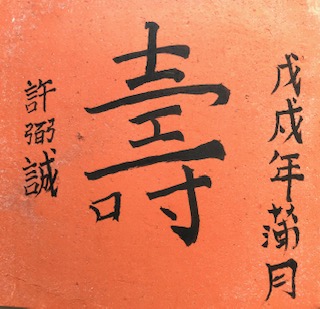 戊戌年蒲月
壽
許弼誠